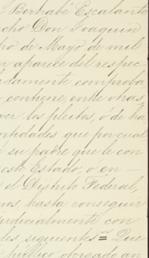 Bernabé Escalante
cho Don Joaquin
ho de Mayo de mil
n aparece del respec
damente comproba
contiene, entre otras,
por los pleitos, o de ha
nhadas que por cual
su padre que le con
este Estado, o en
el Distrito Federal,
nos hasta conseguir
judicialmente con
les siguientes = Que